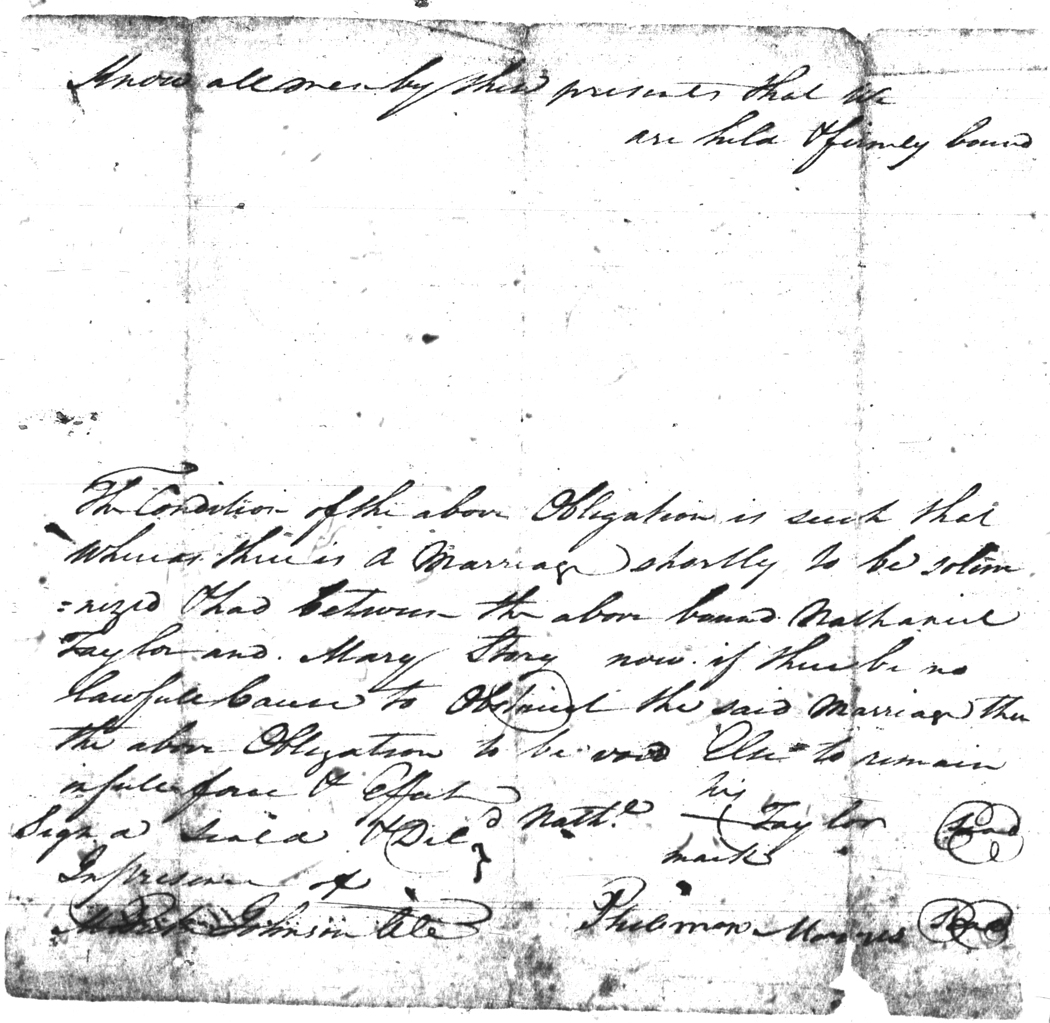 Know all men by these presents that we
are held & firmly bound
The Condition of the above Obligation is such that
Whereas there is a Marriage shortly to be solem
=nized & had between the above bound Nathaniel
Taylor and Mary Story now if there be no
lawfull Cause to Obstruct the said Marriage then
the above Obligation to be void Else to remain
in full force & Effect
his
Sign'd Seal'd & Del'd Nath.l + Taylor Seal
mark
In presence of
Johnson Philemon Seal